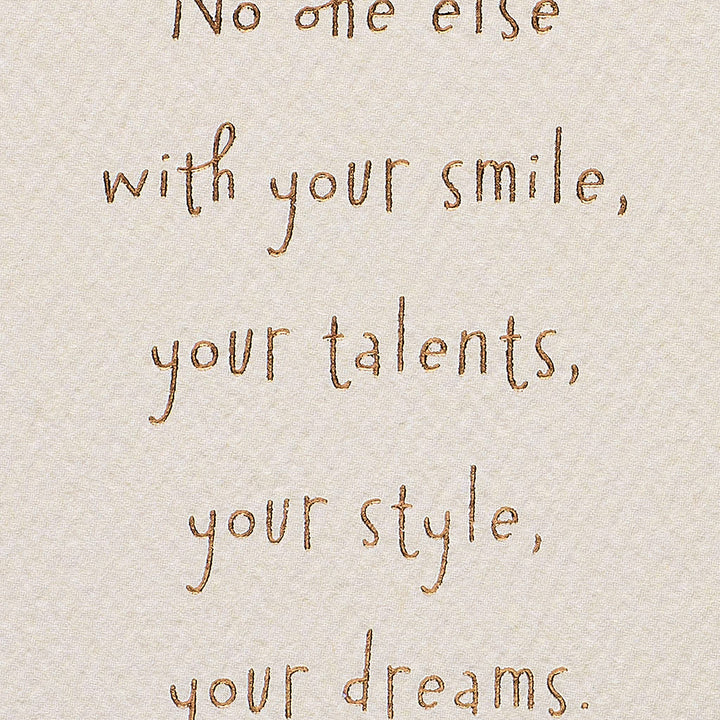 No one else
with your smile,
your talents,
your style,
your dreams.